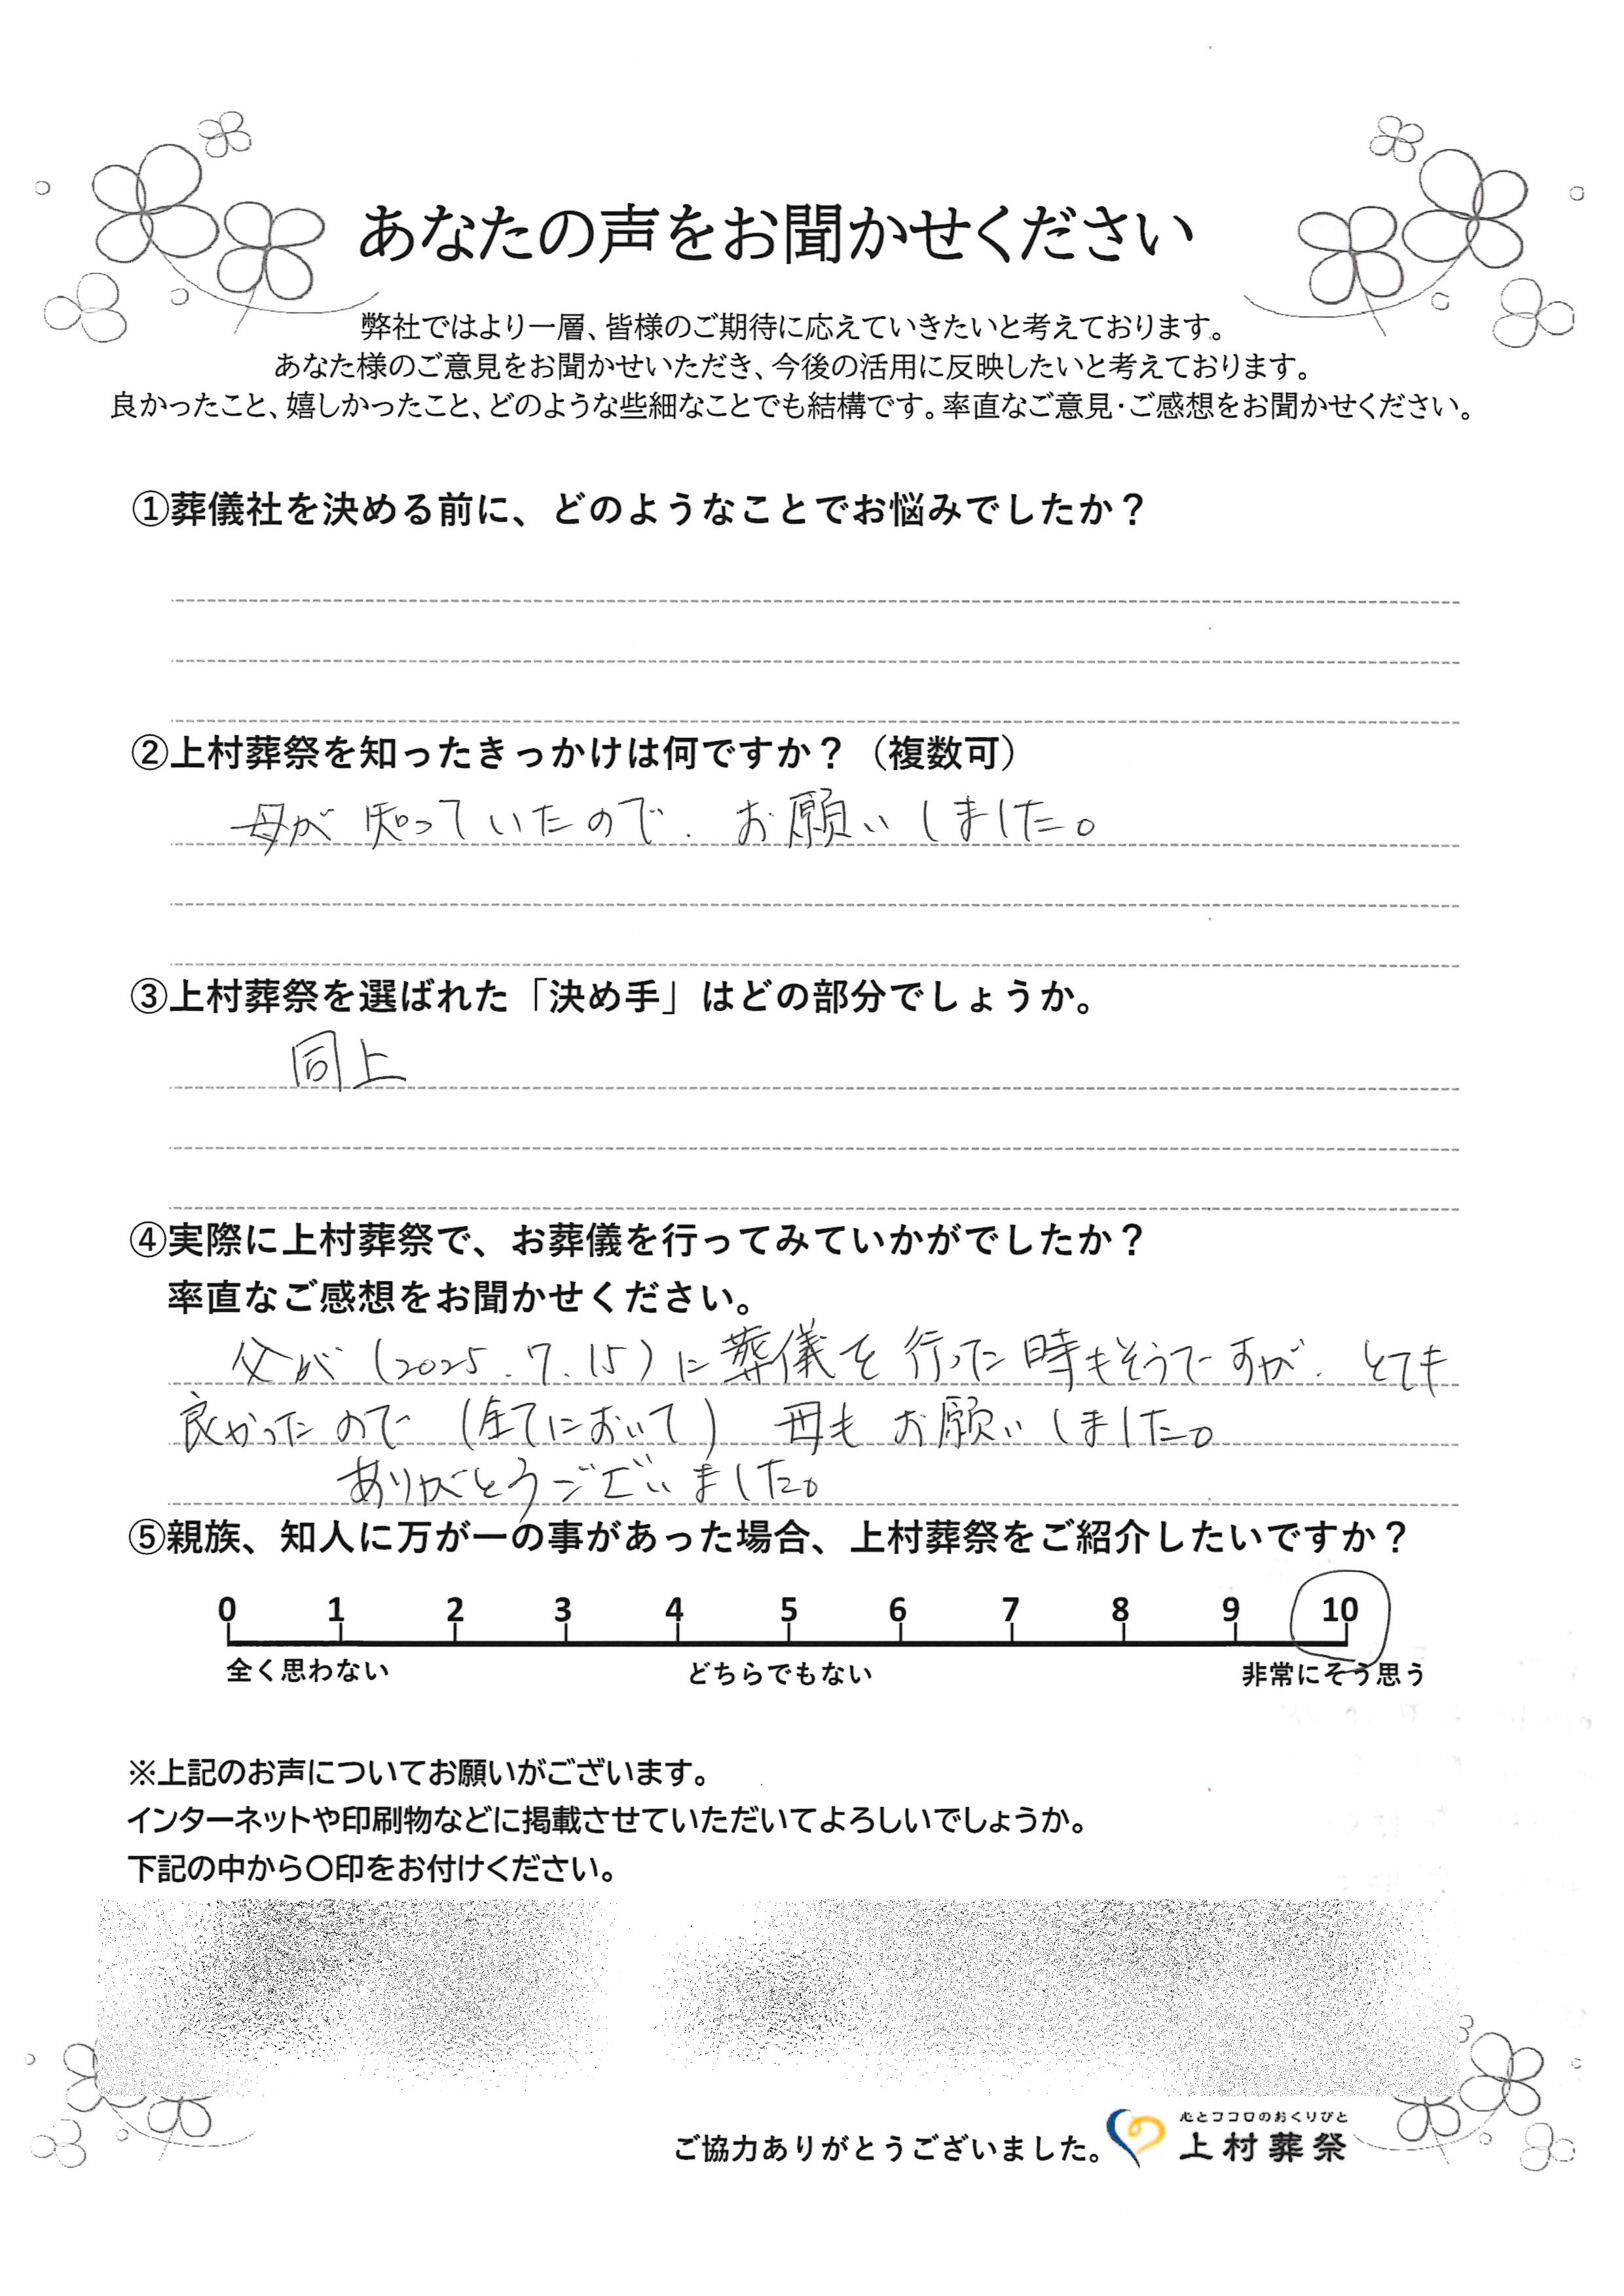 あなたの声をお聞かせください
弊社ではより一層、皆様のご期待に応えていきたいと考えております。
あなた様のご意見をお聞かせいただき、今後の活用に反映したいと考えております。
良かったこと、嬉しかったこと、どのような些細なことでも結構です。率直なご意見・ご感想をお聞かせください。
①葬儀社を決める前に、どのようなことでお悩みでしたか？
②上村葬祭を知ったきっかけは何ですか？（複数可）
母が知っていたので、お願いしました。
③上村葬祭を選ばれた「決め手」はどの部分でしょうか。
同上
④実際に上村葬祭で、お葬儀を行ってみていかがでしたか？
率直なご感想をお聞かせください。
父が（2025.7.15）に葬儀を行った時もそうですが、とても
良かったので（全てにおいて）母もお願いしました。
ありがとうございました。
⑤親族、知人に万が一の事があった場合、上村葬祭をご紹介したいですか？
0 1 2 3 4 5 6 7 8 9 10
全く思わない どちらでもない 非常にそう思う
※上記のお声についてお願いがございます。
インターネットや印刷物などに掲載させていただいてよろしいでしょうか。
下記の中から〇印をお付けください。
心とココロのおくりびと
ご協力ありがとうございました。上村葬祭